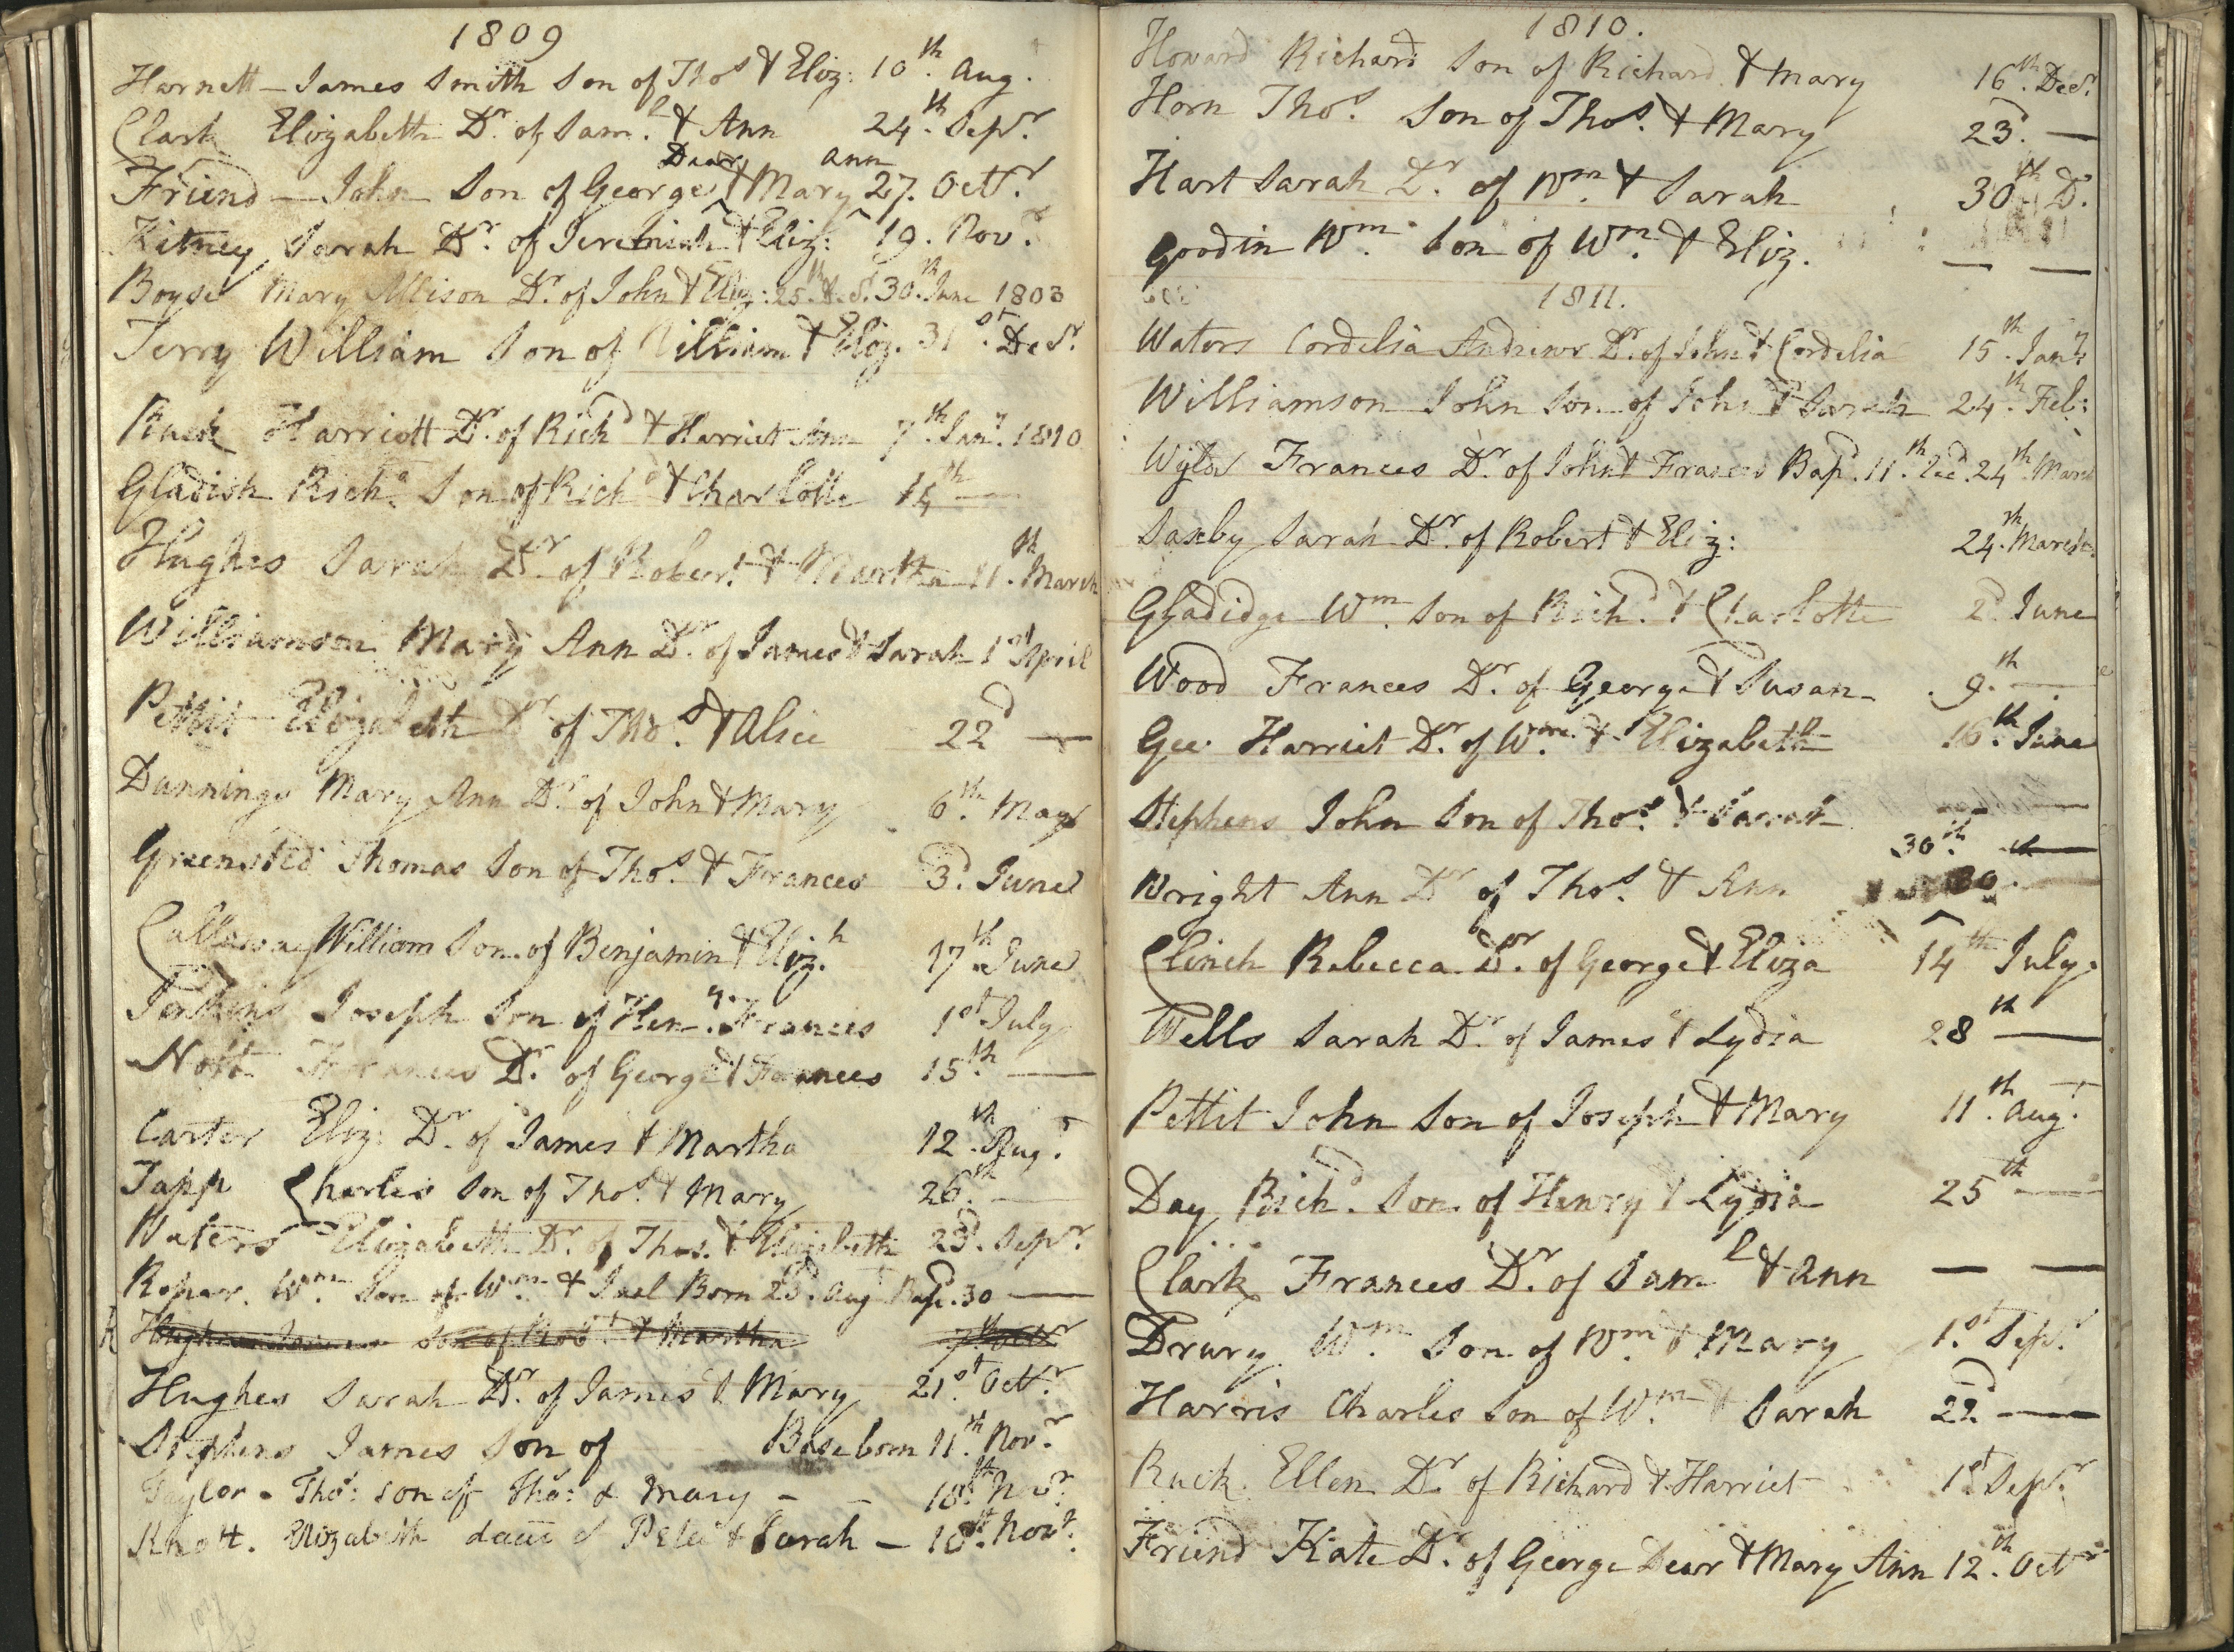 1809
Harnett - James Smith Son of Thos & Eliz: 10th. Aug.
Clark Elizabeth Dr. of Sam.l & Ann 24th. Sepr.
Dear Ann
Friend - John Son of George & Mary 27. Octr.
Kitney Sarah Dr. of Jeremiah & Eliz: 19. Novr.
Boyse Mary Allison Dr. of John & Eliz: 25th. 30th. June 1803
Terry William Son of William & Eliz. 31st. Decr.
Ruck Harriott Dr. of Richd & Harriet Ann 7th. Jany. 1810
Gladish Richd. Son of Richd & Charlotte 14th —
Hughes Sarah Dr. of Robert & Martha 11th. March
Williamson Mary Ann Dr. of James & Sarah 1st April
Pettit Elizabeth Dr of Thos. & Alice 22d —
Dunnings Mary Ann Dr. of John & Mary 6th. May
Greensted Thomas Son of Thos. & Frances 3d. June
Callaway William Son of Benjamin & Eliz.h 17th. June
Jenkins Joseph Son of Heny. & Frances 1st July
Nott Frances Dr. of George & Frances 15th. —
Carter Eliz: Dr. of James & Martha 12th. Augt.
Tapp Charles Son of Thos. & Mary 26th. —
Waters Elizabeth Dr. of Thos. & Elizabeth 23d. Sepr.
Roper. Wm. Son of Wm. & Jael Born 23d. Aug Bapd. 30 —
Hughes James Son of Robt. & Martha 7th Octr
Hughes Sarah Dr. of James & Mary 21st. Octr.
Stephens James Son of Base born 11th. Novr.
Taylor - Thos: son of Thos: & Mary - - 18th. Novr.
Knott. Elizabeth dau of Peter & Sarah - 18th. Novr.
1810.
Howard Richard Son of Richard & Mary 16th. Decr.
Horn Thos. Son of Thos. & Mary 23d. —
Hart Sarah Dr. of Wm. & Sarah 30th D.
Goodin Wm. Son of Wm. & Eliz. — —
1811.
Waters Cordelia Andrews Dr. of John & Cordelia 15th. Jany.
Williamson John Son of John & Sarah 24th. Feb:
Wyles Frances Dr. of John & Frances Bapd. 11th. Recd. 24th. March
Saxby Sarah Dr. of Robert & Eliz: 24th. March.
Gladidge Wm. Son of Richd. & Charlotte 2d June
Wood Frances Dr. of George & Susan 9th. —
Gee Harriet Dr. of Wm. & Elizabeth 16th. June
Stephens John Son of Thos. & Sarah — —
30th. —
Wright Ann Dr of Thos. & Ann 30. —
Clinch Rebecca Dr. of George & Eliza 14th July.
Wells Sarah Dr. of James & Lydia 28th —
Pettit John Son of Joseph & Mary 11th. Augt.
Day Richd. Son of Henry & Lydia 25th —
Clark Frances Dr. of Saml & Ann — —
Drury Wm. Son of Wm. & Mary 1st. Sepr.
Harris Charles Son of Wm. & Sarah 22d. —
Ruck Ellen Dr. of Richard & Harriet 1st. Sepr.
Friend Kate Dr. of George Dear & Mary Ann 12th. Octr